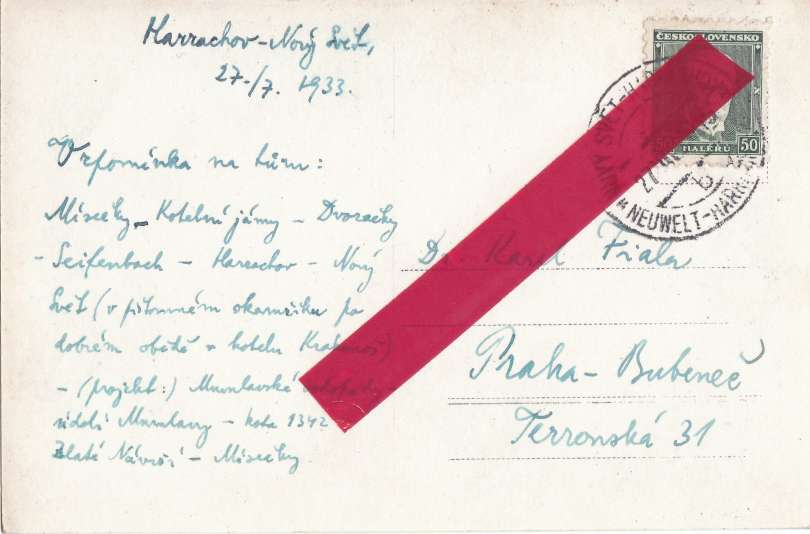 Harrachov-Nový Svět,
27./7. 1933.
Vzpomínka na túru:
Mísečky - Kotelní jámy - Dvoračky
- Seifenbach - Harrachov - Nový
Svět (v přítomném okamžiku po
dobrém obědě v hotelu Krakonoš)
- (projekt:) Mumlavské vodopády -
údolí Mumlavy - kota 1342
Zlaté Návrší - Mísečky.
ČESKOSLOVENSKO
HALÉŘŮ 50
NEUWELT-HARR
Dr. Karel Fiala
Praha - Bubeneč
Terronská 31